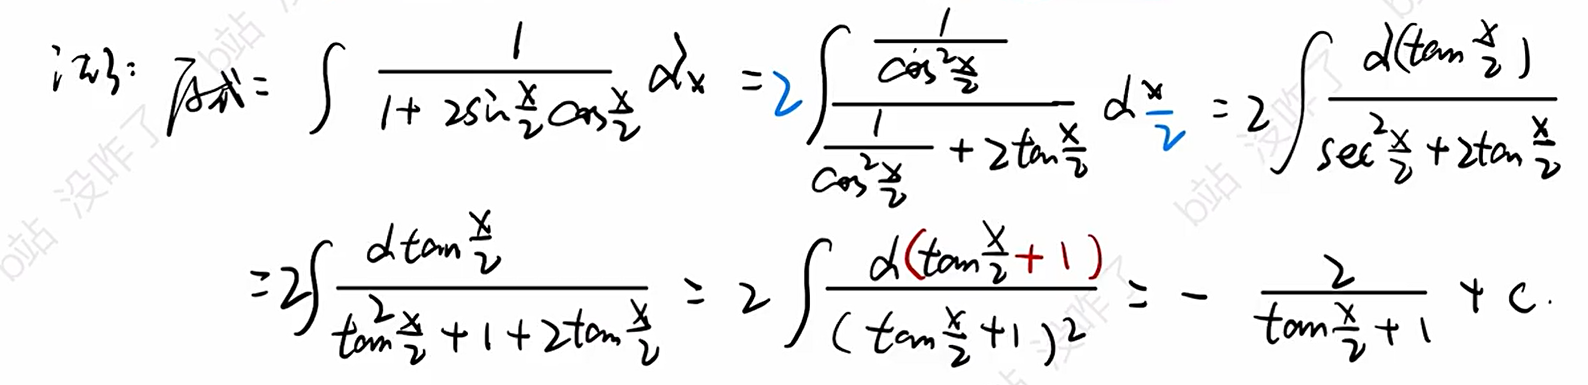 法3: 原式 = ∫ 1/(1+2sin x/2 cos x/2) dx = 2∫ (1/cos² x/2)/(1/cos² x/2 + 2tan x/2) d x/2 = 2∫ d(tan x/2)/(sec² x/2 + 2tan x/2)
= 2∫ d tan x/2/(tan² x/2 + 1 + 2tan x/2) = 2∫ d(tan x/2 + 1)/(tan x/2 + 1)² = - 2/(tan x/2 + 1) + C.
b站 没咋了
b站 没咋了
b站 没咋了